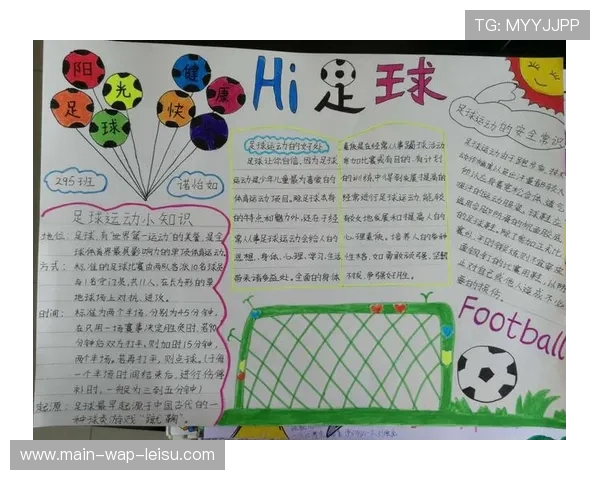 TG: MYYJJPP
Hi 足球
阳光
足球
快
健康
295班
诺怡如
足球运动小知识
地位：足球,有"世界第一运动"的美誉,是全
球体育界最具影响力的单项体育运动。
方式：标准的足球比赛由两队各派10名球员
与1名守门员,共11人,在长方形的草
地球场上对抗、进攻。
时间：标准为两个半场,分别为45分钟,
在只用一场赛事决定胜负时,若90
分钟后双方打平,则加时15分钟,
两个半场。若再打平,则点球。(于每
一个半场时间结束后,进行伤停
补时,一般为三到五分钟)
起源：足球最早起源于中国古代的一
种球类游戏"蹴鞠"。
足球运动的好处
足球让你自信,因为足球
运动是少年儿童最为喜爱的
体育运动项目。除足球本身
的特点和魅力外,还在于经
常从事足球运动会给人的
思想、身体、心理、学习、生活
带来诸多益处。全面的身体
素质是在经常从事踢球活动
参加比赛或有目的、有计划
的训练中得到发展提高的
经常进行足球运动能较
有效地发展和提高人的
心理素质。培养人的各种
性格,如勇敢顽强、坚韧
不拔、争强好胜。
足球运动的安全常识
Football
www.main-wap-leisu.com